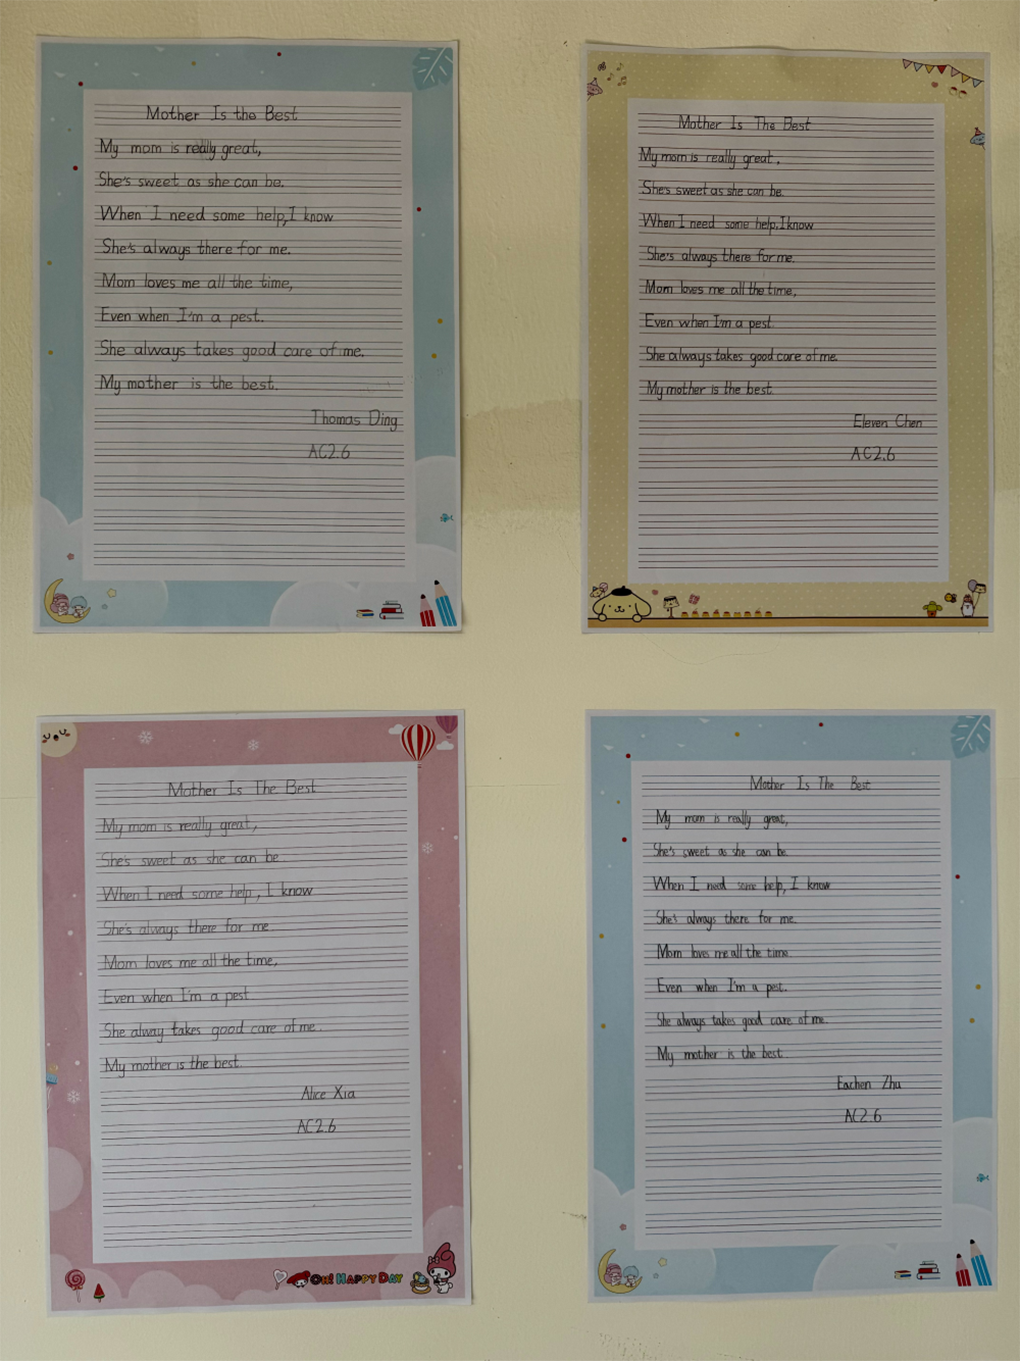 Mother Is the Best
My mom is really great,
She's sweet as she can be.
When I need some help, I know
She's always there for me.
Mom loves me all the time,
Even when I'm a pest.
She always takes good care of me.
My mother is the best.
Thomas Ding
AC2.6
Mother Is The Best
My mom is really great,
She's sweet as she can be.
When I need some help, I know
She's always there for me.
Mom loves me all the time,
Even when I'm a pest.
She always takes good care of me.
My mother is the best.
Eleven Chen
AC2.6
Mother Is The Best
My mom is really great,
She's sweet as she can be.
When I need some help, I know
She's always there for me.
Mom loves me all the time,
Even when I'm a pest
She alway takes good care of me.
My mother is the best.
Alice Xia
AC2.6
OH! HAPPY DAY
Mother Is The Best
My mom is really great,
She's sweet as she can be.
When I need some help, I know
She's always there for me.
Mom loves me all the time.
Even when I'm a pest.
She always takes good care of me.
My mother is the best.
Eachen Zhu
AC2.6